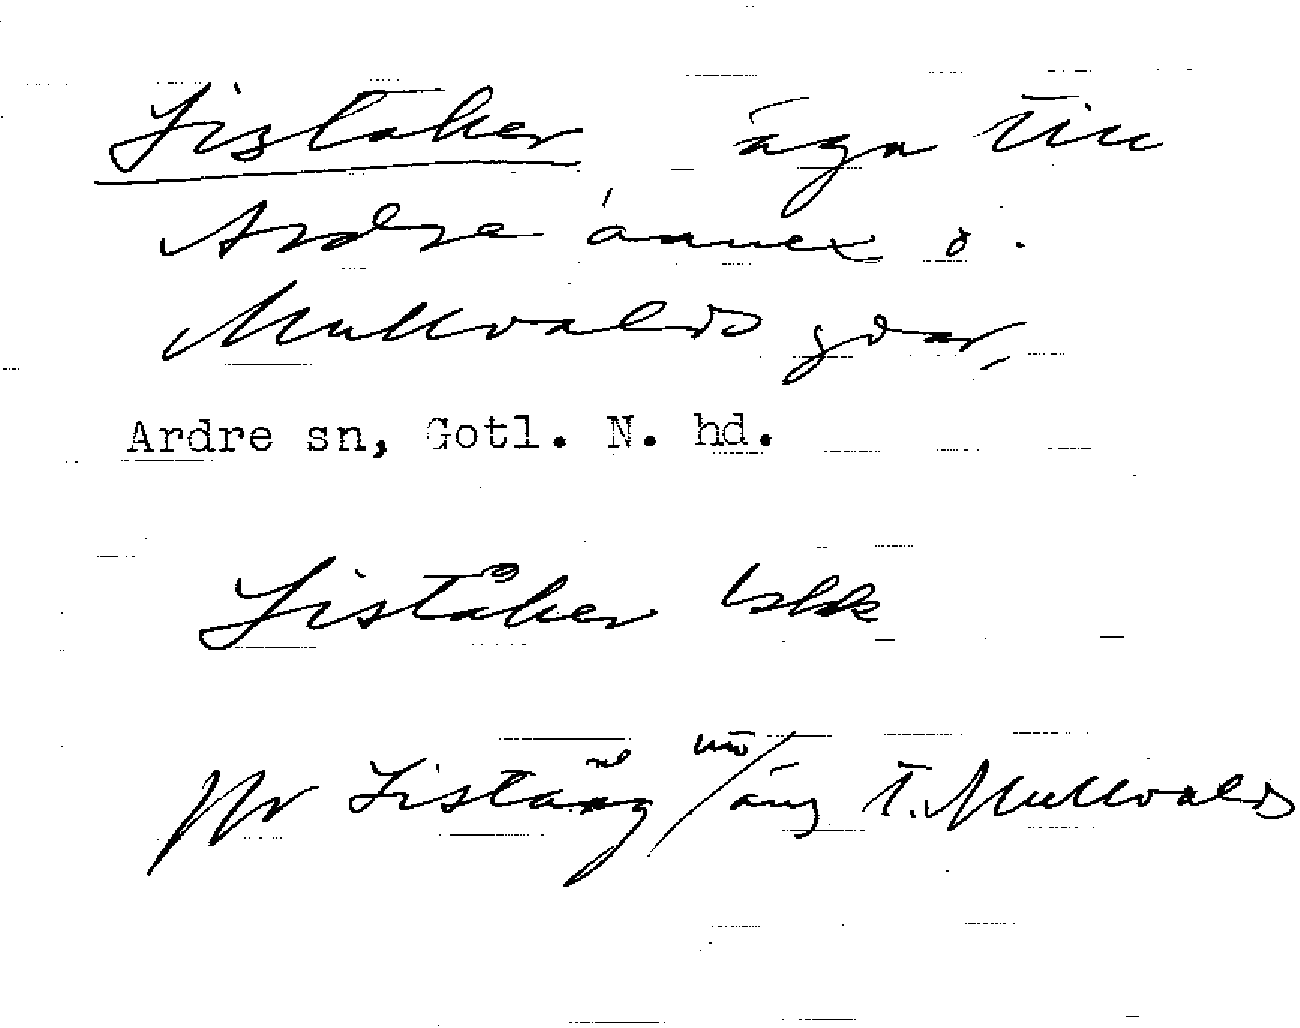 Listaker äga till
Ardre annex o.
Mullvalds gdar,
Ardre sn, Gotl. N. hd.
Liståker
Jfr Listäng äng t. Mullvalds